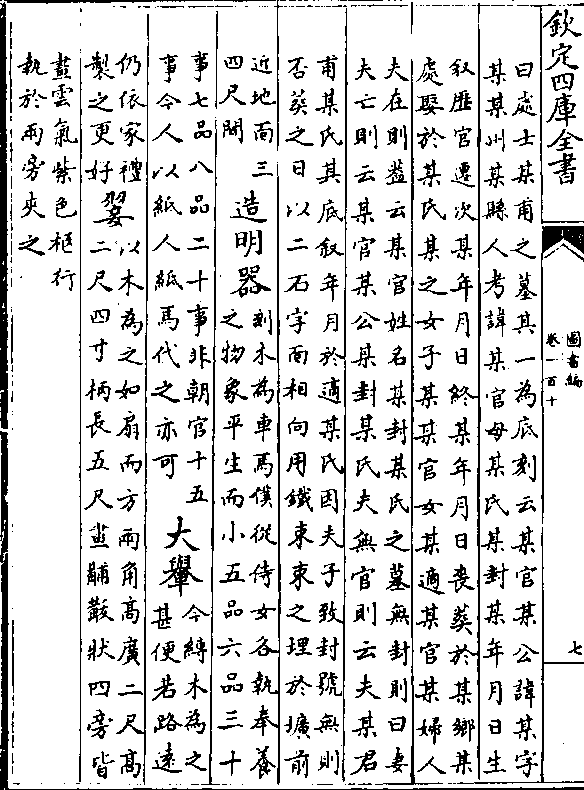 欽定四庫全書
圖書編
卷一百十
七
曰處士某甫之墓其一為底刻云某官某公諱某字
某某州某縣人考諱某官母某氏某封某年月日生
叙歷官遷次某年月日終某年月日喪葬於某鄉某
處娶於某氏某之女子某某官女某適某官某婦人
夫在則葢云某官姓名某封某氏之墓無封則曰妻
夫亡則云某官某公某封某氏夫無官則云夫某君
甫某氏其底叙年月於適某氏因夫子致封號無則
否葬之日以二石字面相向用鐵束束之埋於壙前
近地面三
四尺間
造明器
刻木為車馬僕從侍女各執奉養
之物象平生而小五品六品三十
事七品八品二十事非朝官十五
事今人以紙人紙馬代之亦可
大轝
今縛木為之
甚便若路遠
仍依家禮
製之更好
翣
以木為之如扇而方兩角高廣二尺高
二尺四寸柄長五尺畫黼黻狀四旁皆
畫雲氣紫色柩行
執於兩旁夾之